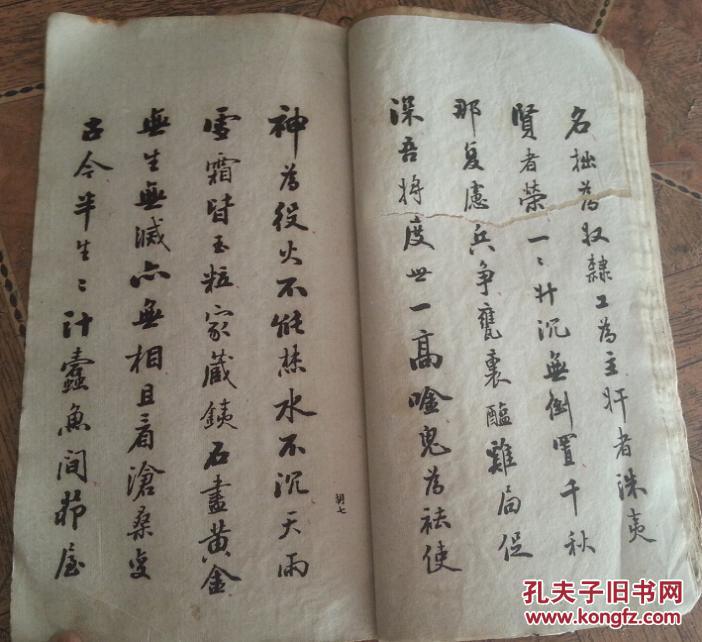 名拙為奴隸工為主奸者誅夷
賢者榮一〻升沉無倒置千秋
那复慮兵争甕裏醯雞局促
深吾将度世一高唫鬼為祛使
神為役火不能焚水不沉天雨
雪霜皆玉粒家藏銕石盡黄金
無生無滅亦無相且看滄桑变
古今半生〻計蠹魚間茆屋
孔夫子旧书网
www.kongfz.com